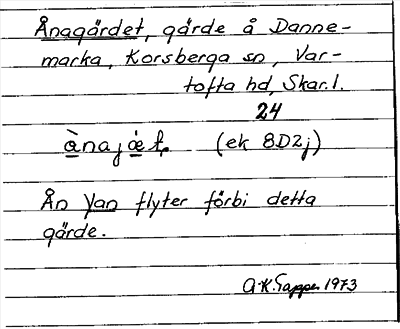 Ånagärdet, gärde å Danne-
marka, Korsberga sn, Var-
tofta hd, Skar.l.
24
(ek 8D2j)
Ån Yan flyter förbi detta
gärde.
A-K. Tapper 1973